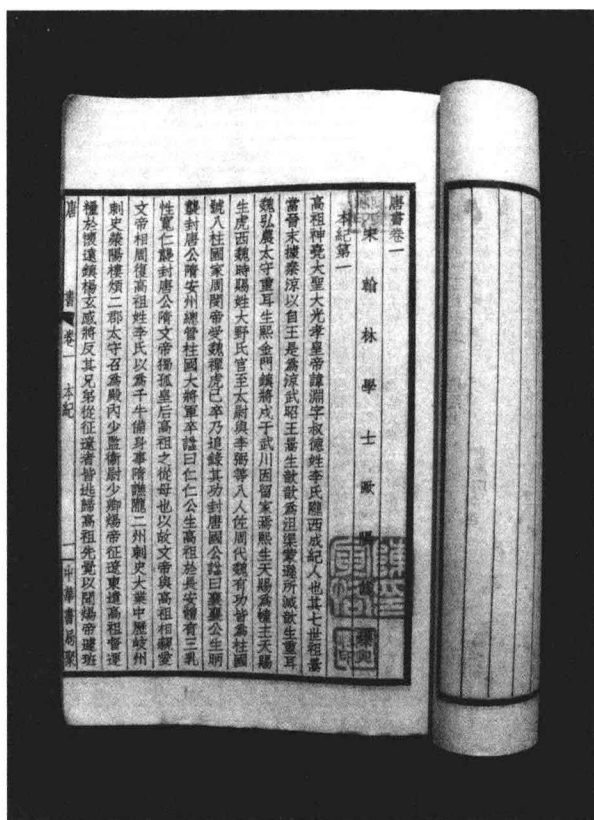 唐書卷一
宋翰林學士歐陽
本紀第一
高祖神堯大聖大光孝皇帝諱淵字叔德姓李氏隴西成紀人也其七世祖暠
當晉末據秦涼以自王是爲涼武昭王暠生歆歆爲沮渠蒙遜所滅歆生重耳
魏弘農太守重耳生熙金門鎭將戍于武川因留家焉熙生天賜爲幢主天賜
生虎西魏時賜姓大野氏官至太尉與李弼等八人佐周代魏有功皆爲柱國
號八柱國家周閔帝受魏禪虎已卒乃追錄其功封唐國公謚曰襄襄公生昞
襲封唐公隋安州總管柱國大將軍卒謚曰仁仁公生高祖於長安體有三乳
性寬仁襲封唐公隋文帝獨孤皇后高祖之從母也以故文帝與高祖相親愛
文帝相周復高祖姓李氏以爲千牛備身事隋譙隴二州刺史大業中歷岐州
刺史滎陽樓煩二郡太守召爲殿內少監衞尉少卿煬帝征遼東遣高祖督運
糧於懷遠鎭楊玄感將反其兄弟從征遼者皆逃歸高祖先覺以聞煬帝遽班
唐書 卷一 本紀 一 中華書局聚